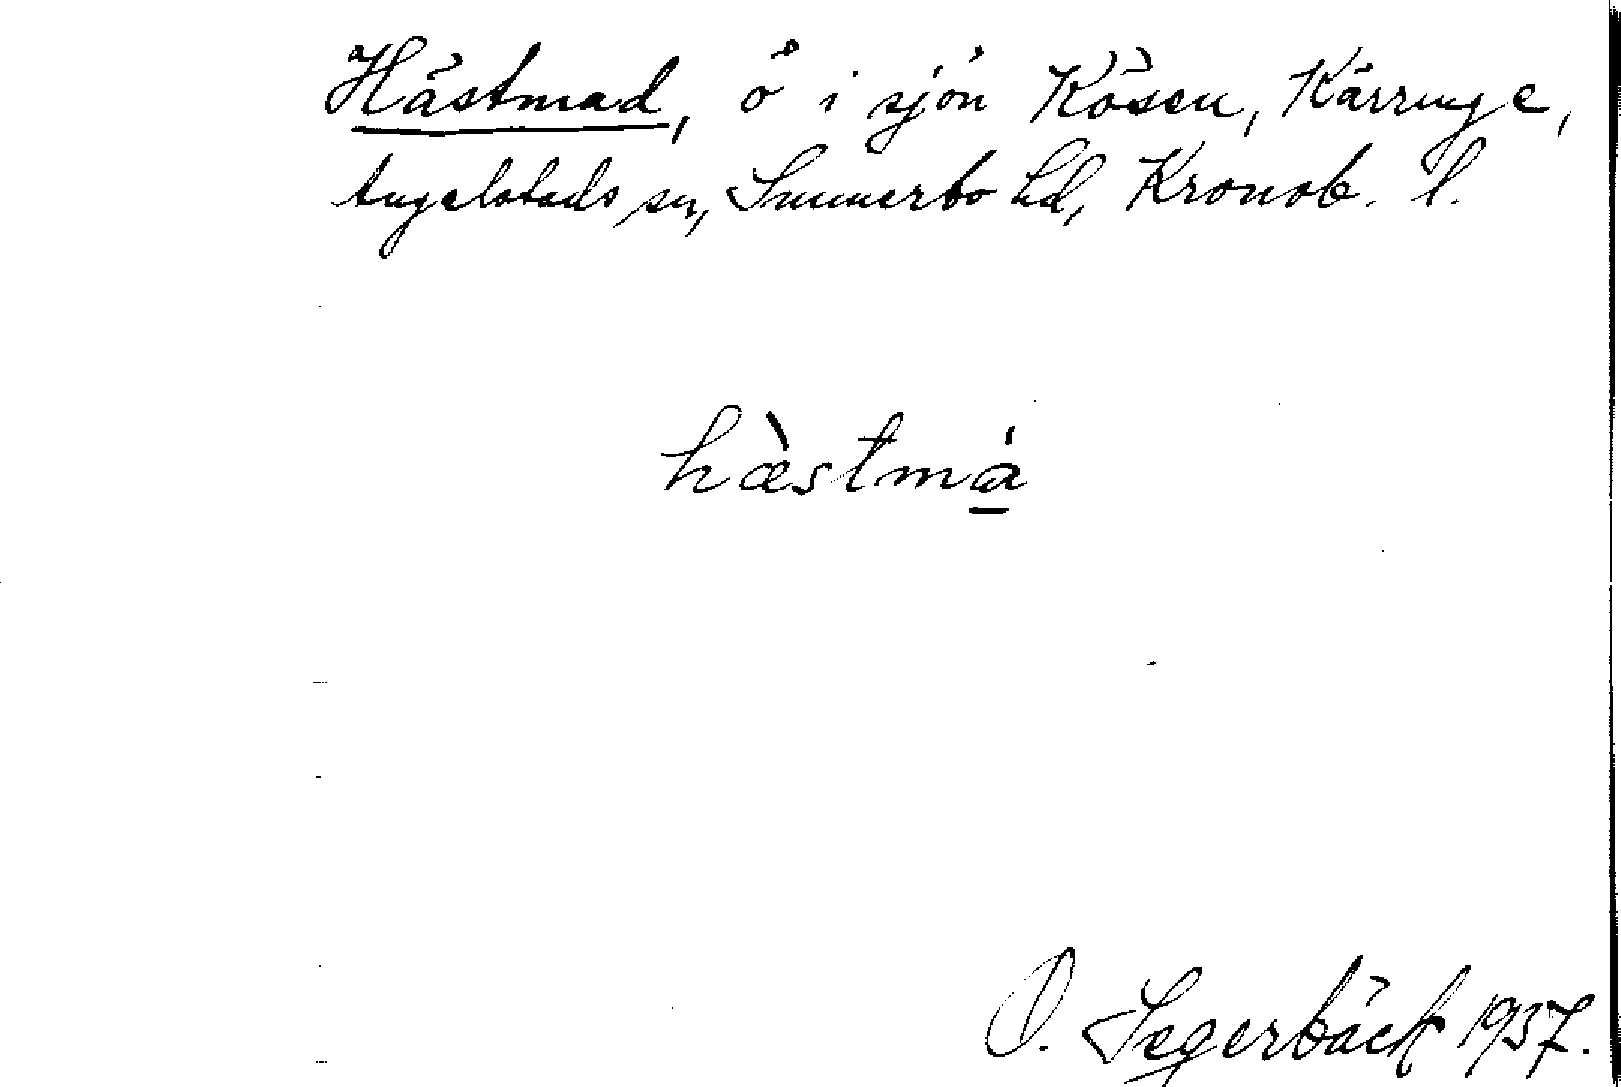 Hästmad, ö i sjön Kösen, Kärringe,
Angelstads sn, Sunnerbo hd, Kronob. l.
hæ̀stmá̱
O. Segerbäck 1937.